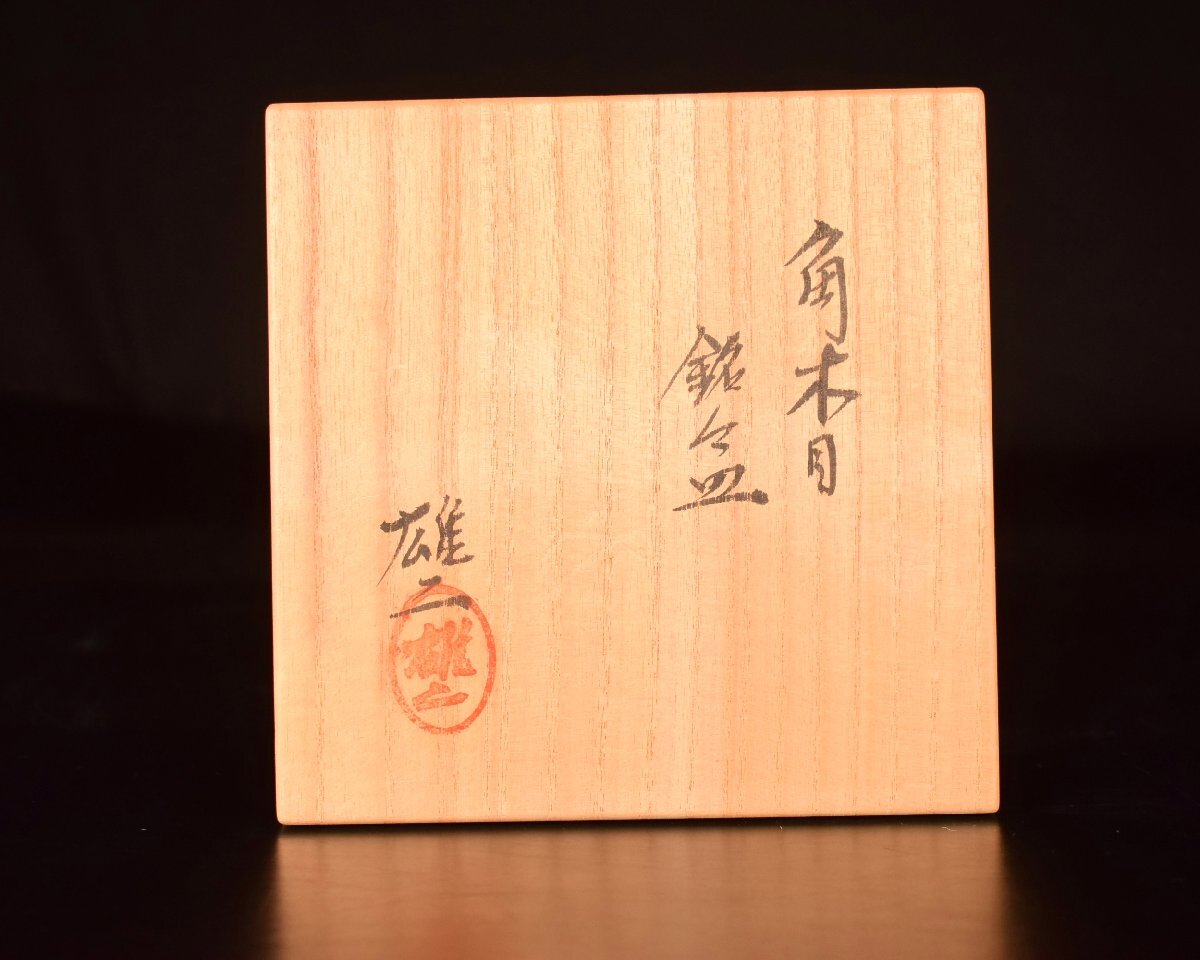 角木目
銘々皿
雄二
雄二